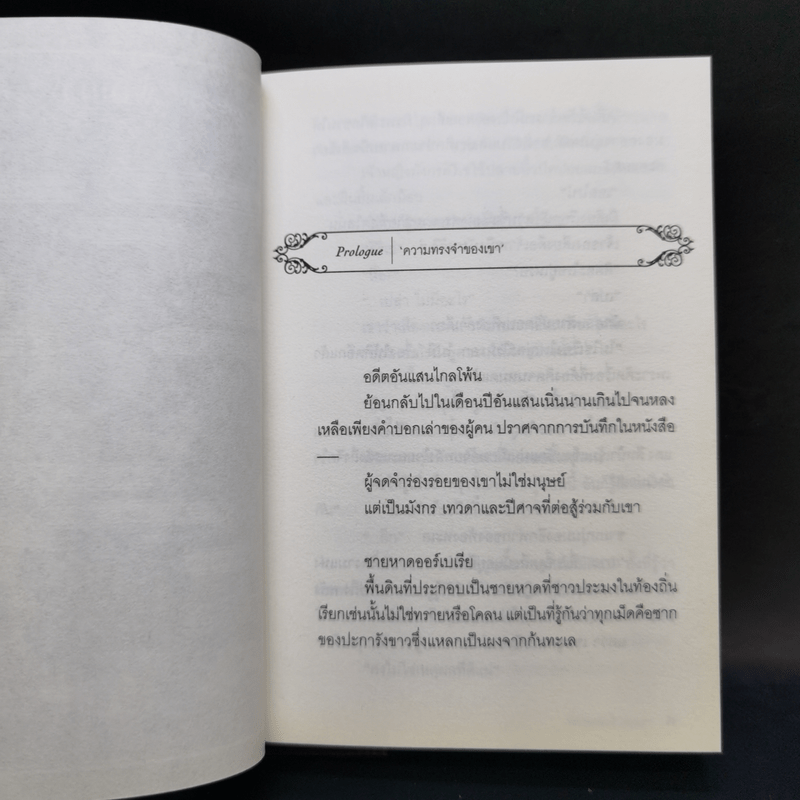 Prologue | 'ความทรงจำของเขา'
อดีตอันแสนไกลโพ้น
ย้อนกลับไปในเดือนปีอันแสนเนิ่นนานเกินไปจนหลง
เหลือเพียงคำบอกเล่าของผู้คน ปราศจากการบันทึกในหนังสือ
—
ผู้จดจำร่องรอยของเขาไม่ใช่มนุษย์
แต่เป็นมังกร เทวดาและปีศาจที่ต่อสู้ร่วมกับเขา
ชายหาดออร์เบเรีย
พื้นดินที่ประกอบเป็นชายหาดที่ชาวประมงในท้องถิ่น
เรียกเช่นนั้นไม่ใช่ทรายหรือโคลน แต่เป็นที่รู้กันว่าทุกเม็ดคือซาก
ของปะการังขาวซึ่งแหลกเป็นผงจากก้นทะเล